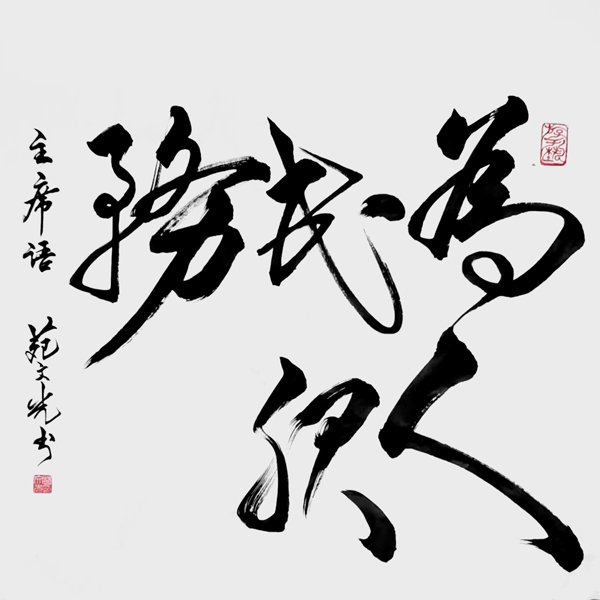 為人
民服
務
主席语 苑文光书